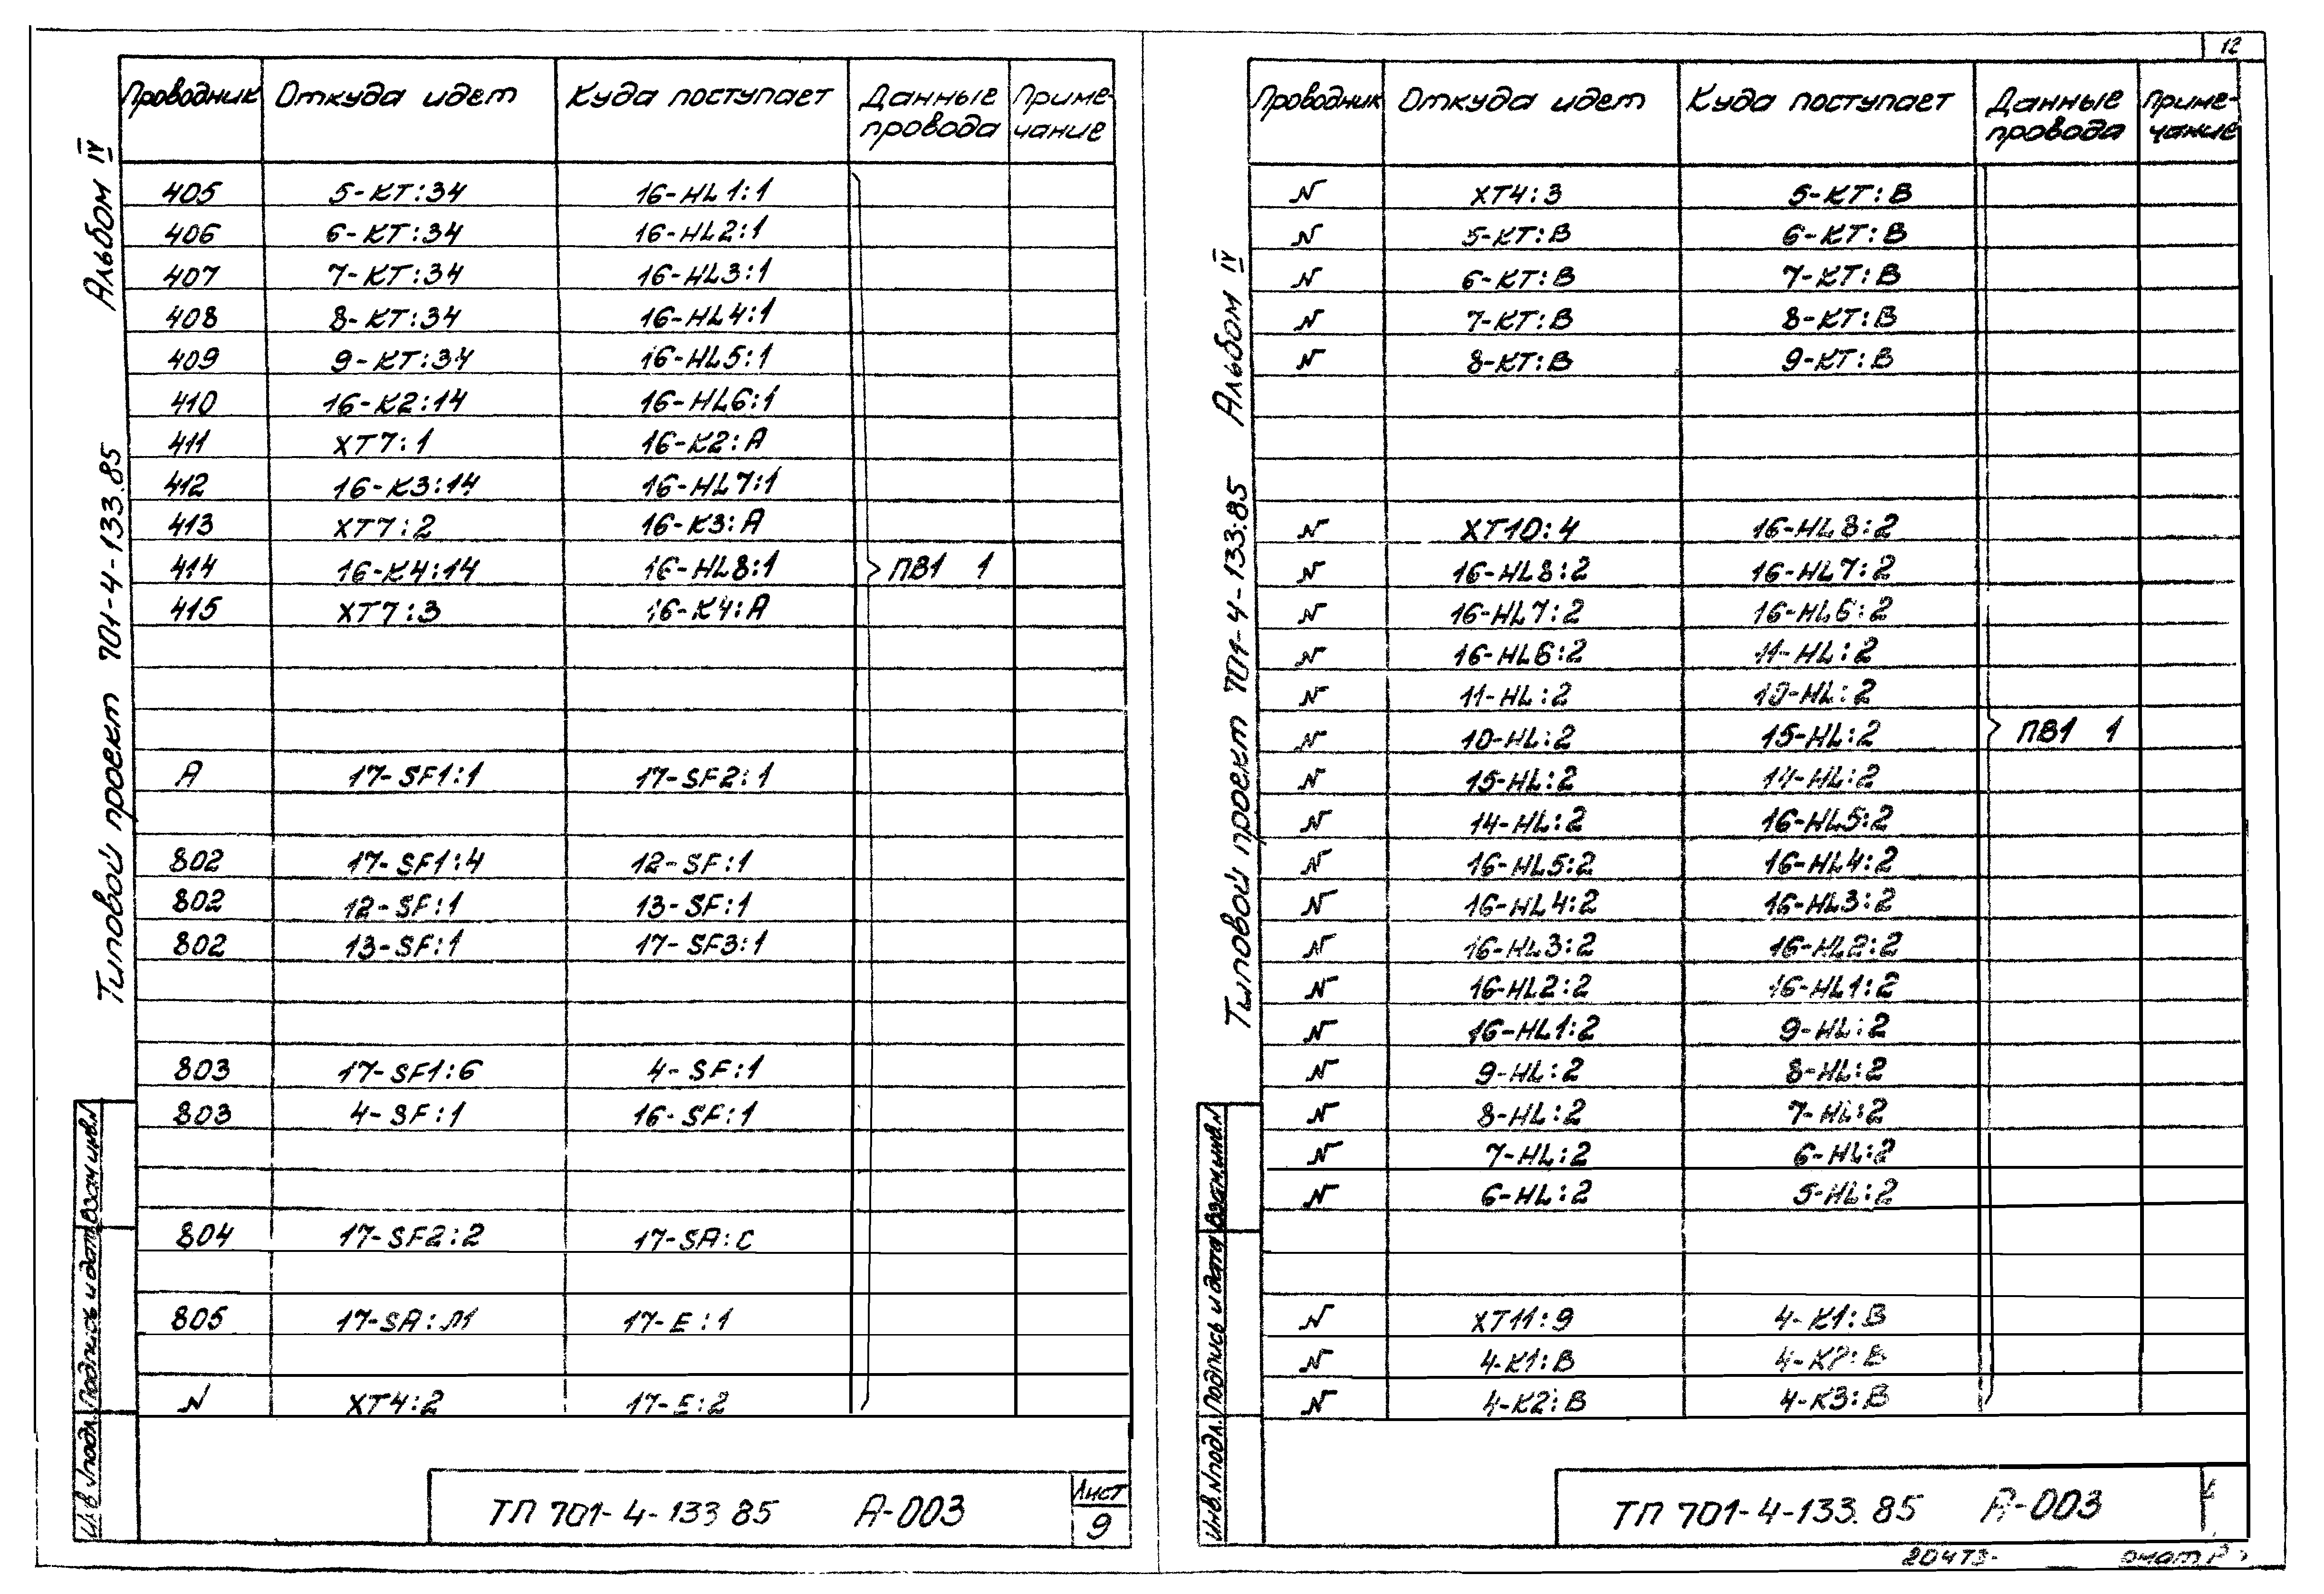 12
Альбом IV
Типовой проект 701-4-133.85
Проводник Откуда идет Куда поступает Данные провода Приме-чание
405 5-КТ:34 16-HL1:1
406 6-КТ:34 16-HL2:1
407 7-КТ:34 16-HL3:1
408 8-КТ:34 16-HL4:1
409 9-КТ:34 16-HL5:1
410 16-К2:14 16-HL6:1
411 ХТ7:1 16-К2:А
412 16-К3:14 16-HL7:1
413 ХТ7:2 16-К3:А
414 16-К4:14 16-HL8:1 ПВ1 1
415 ХТ7:3 16-К4:А
А 17-SF1:1 17-SF2:1
802 17-SF1:4 12-SF:1
802 12-SF:1 13-SF:1
802 13-SF:1 17-SF3:1
803 17-SF1:6 4-SF:1
803 4-SF:1 16-SF:1
804 17-SF2:2 17-SA:C
805 17-SA:Л1 17-Е:1
N ХТ4:2 17-Е:2
Инв.№подл. Подпись и дата Взам инв.№
ТП 701-4-133 85 А-003
Лист
9
Альбом IV
Типовой проект 701-4-133.85
Проводник Откуда идет Куда поступает Данные провода Приме-чание
N ХТ4:3 5-КТ:В
N 5-КТ:В 6-КТ:В
N 6-КТ:В 7-КТ:В
N 7-КТ:В 8-КТ:В
N 8-КТ:В 9-КТ:В
N ХТ10:4 16-HL8:2
N 16-HL8:2 16-HL7:2
N 16-HL7:2 16-HL6:2
N 16-HL6:2 11-HL:2
N 11-HL:2 10-HL:2
N 10-HL:2 15-HL:2 ПВ1 1
N 15-HL:2 14-HL:2
N 14-HL:2 16-HL5:2
N 16-HL5:2 16-HL4:2
N 16-HL4:2 16-HL3:2
N 16-HL3:2 16-HL2:2
N 16-HL2:2 16-HL1:2
N 16-HL1:2 9-HL:2
N 9-HL:2 8-HL:2
N 8-HL:2 7-HL:2
N 7-HL:2 6-HL:2
N 6-HL:2 5-HL:2
N ХТ11:9 4-К1:В
N 4-К1:В 4-К2:В
N 4-К2:В 4-К3:В
Инв.№подл. Подпись и дата Взам.инв.№
ТП 701-4-133.85 А-003